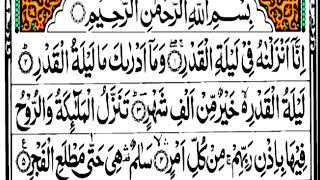 بِسْمِ اللّٰهِ الرَّحْمٰنِ الرَّحِيْمِ
اِنَّاۤ اَنْزَلْنٰهُ فِيْ لَيْلَةِ الْقَدْرِ ۚۖ ۝۱ وَمَاۤ اَدْرٰىكَ مَا لَيْلَةُ الْقَدْرِ ؕ ۝۲
لَيْلَةُ الْقَدْرِ ۙ۬ خَيْرٌ مِّنْ اَلْفِ شَهْرٍ ؕؔ ۝۳ تَنَزَّلُ الْمَلٰٓئِكَةُ وَالرُّوْحُ
فِيْهَا بِاِذْنِ رَبِّهِمْ ۚ مِنْ كُلِّ اَمْرٍ ۙۛ ۝۴ سَلٰمٌ ۛ۫ هِيَ حَتّٰى مَطْلَعِ الْفَجْرِ ۝۵